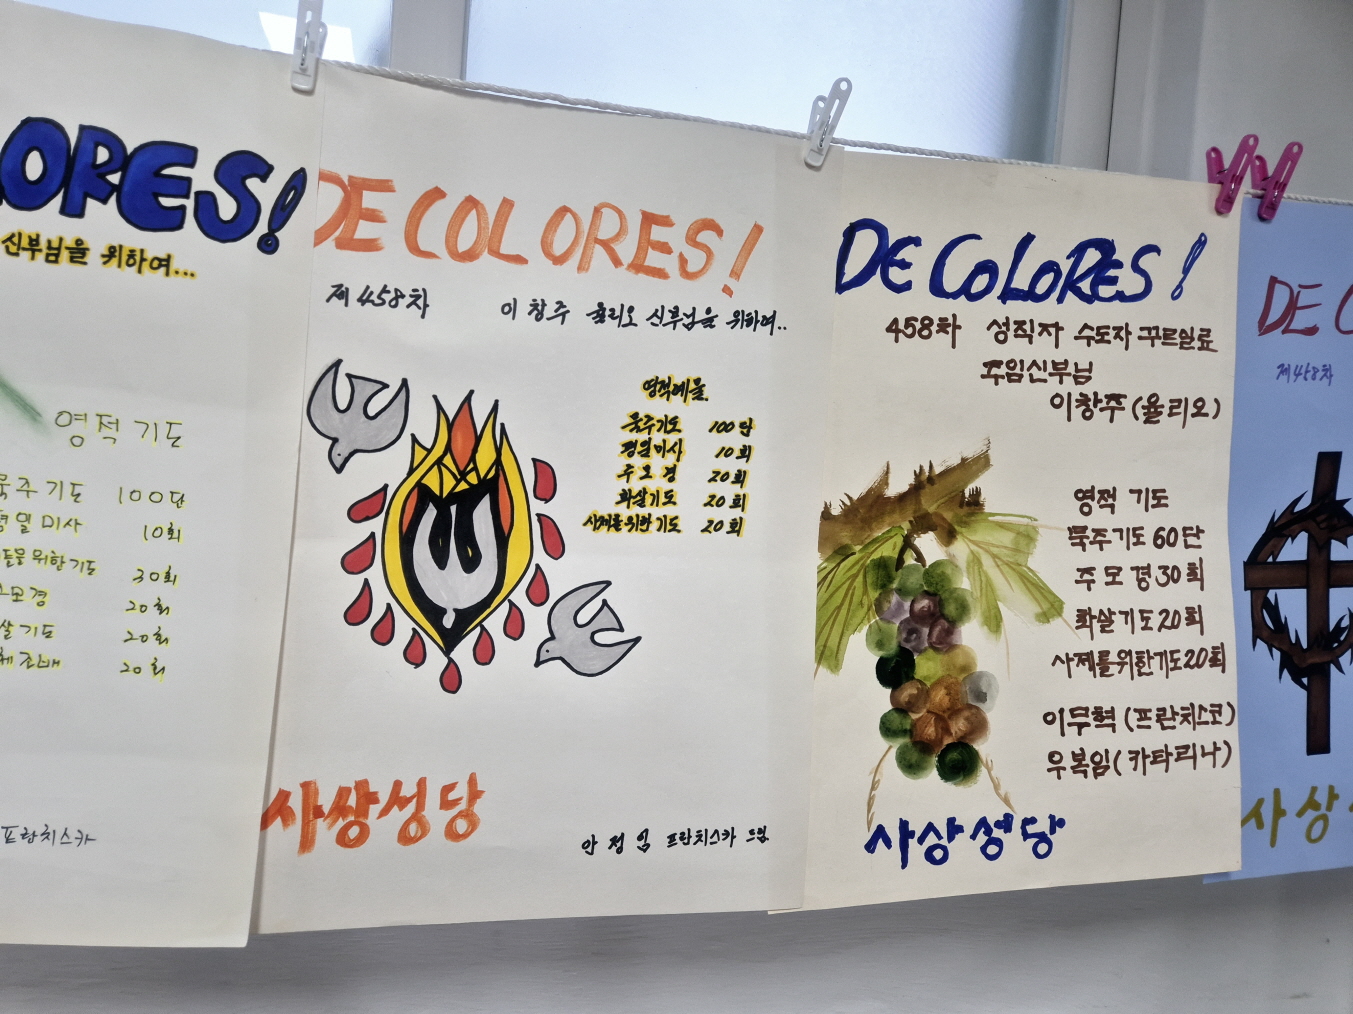 ORES!
신부님을 위하여...
영적 기도
묵주기도 100단
평일미사 10회
위한기도 30회
모경 20회
살기도 20회
체조배 20회
프란치스카
DE COLORES!
제458차 이창주 율리오 신부님을 위하여..
영적예물.
묵주기도 100단
평일미사 10회
주모경 20회
화살기도 20회
사제를위한기도 20회
사상성당
안정임 프란치스카 드림.
DE COLORES!
458차 성직자 수도자 꾸르실료
주임신부님
이창주(율리오)
영적 기도
묵주기도 60단
주모경 30회
화살기도 20회
사제를위한기도 20회
이무혁(프란치스코)
우복임(카타리나)
사상성당
DE C
제458차
사상